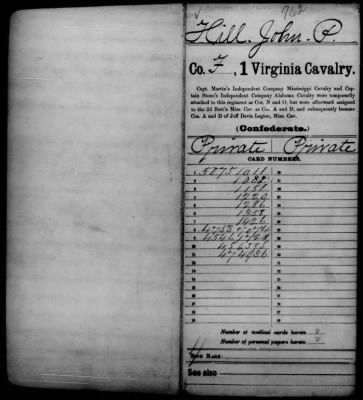 962
Hill, John P.
Co. F, 1 Virginia Cavalry.
Capt. Martin's Independent Company Mississippi Cavalry and Cap-
tain Stone's Independent Company Alabama Cavalry were temporarily
attached to this regiment as Cos. N and O, but were afterward assigned
to the 2d Batt'n Miss. Cav. as Co. A and D, and subsequently became
Cos. A and D of Jeff Davis Legion, Miss. Cav.
(Confederate.)
Private Private
CARD NUMBERS.
1 50751011
2
3 1151
4 1220
5 1286
6 1358
7 1426
8
9
10 456575
11 474936
12
13
14
Number of medical cards herein 0
Number of personal papers herein 0
BOOK MARK:
See also